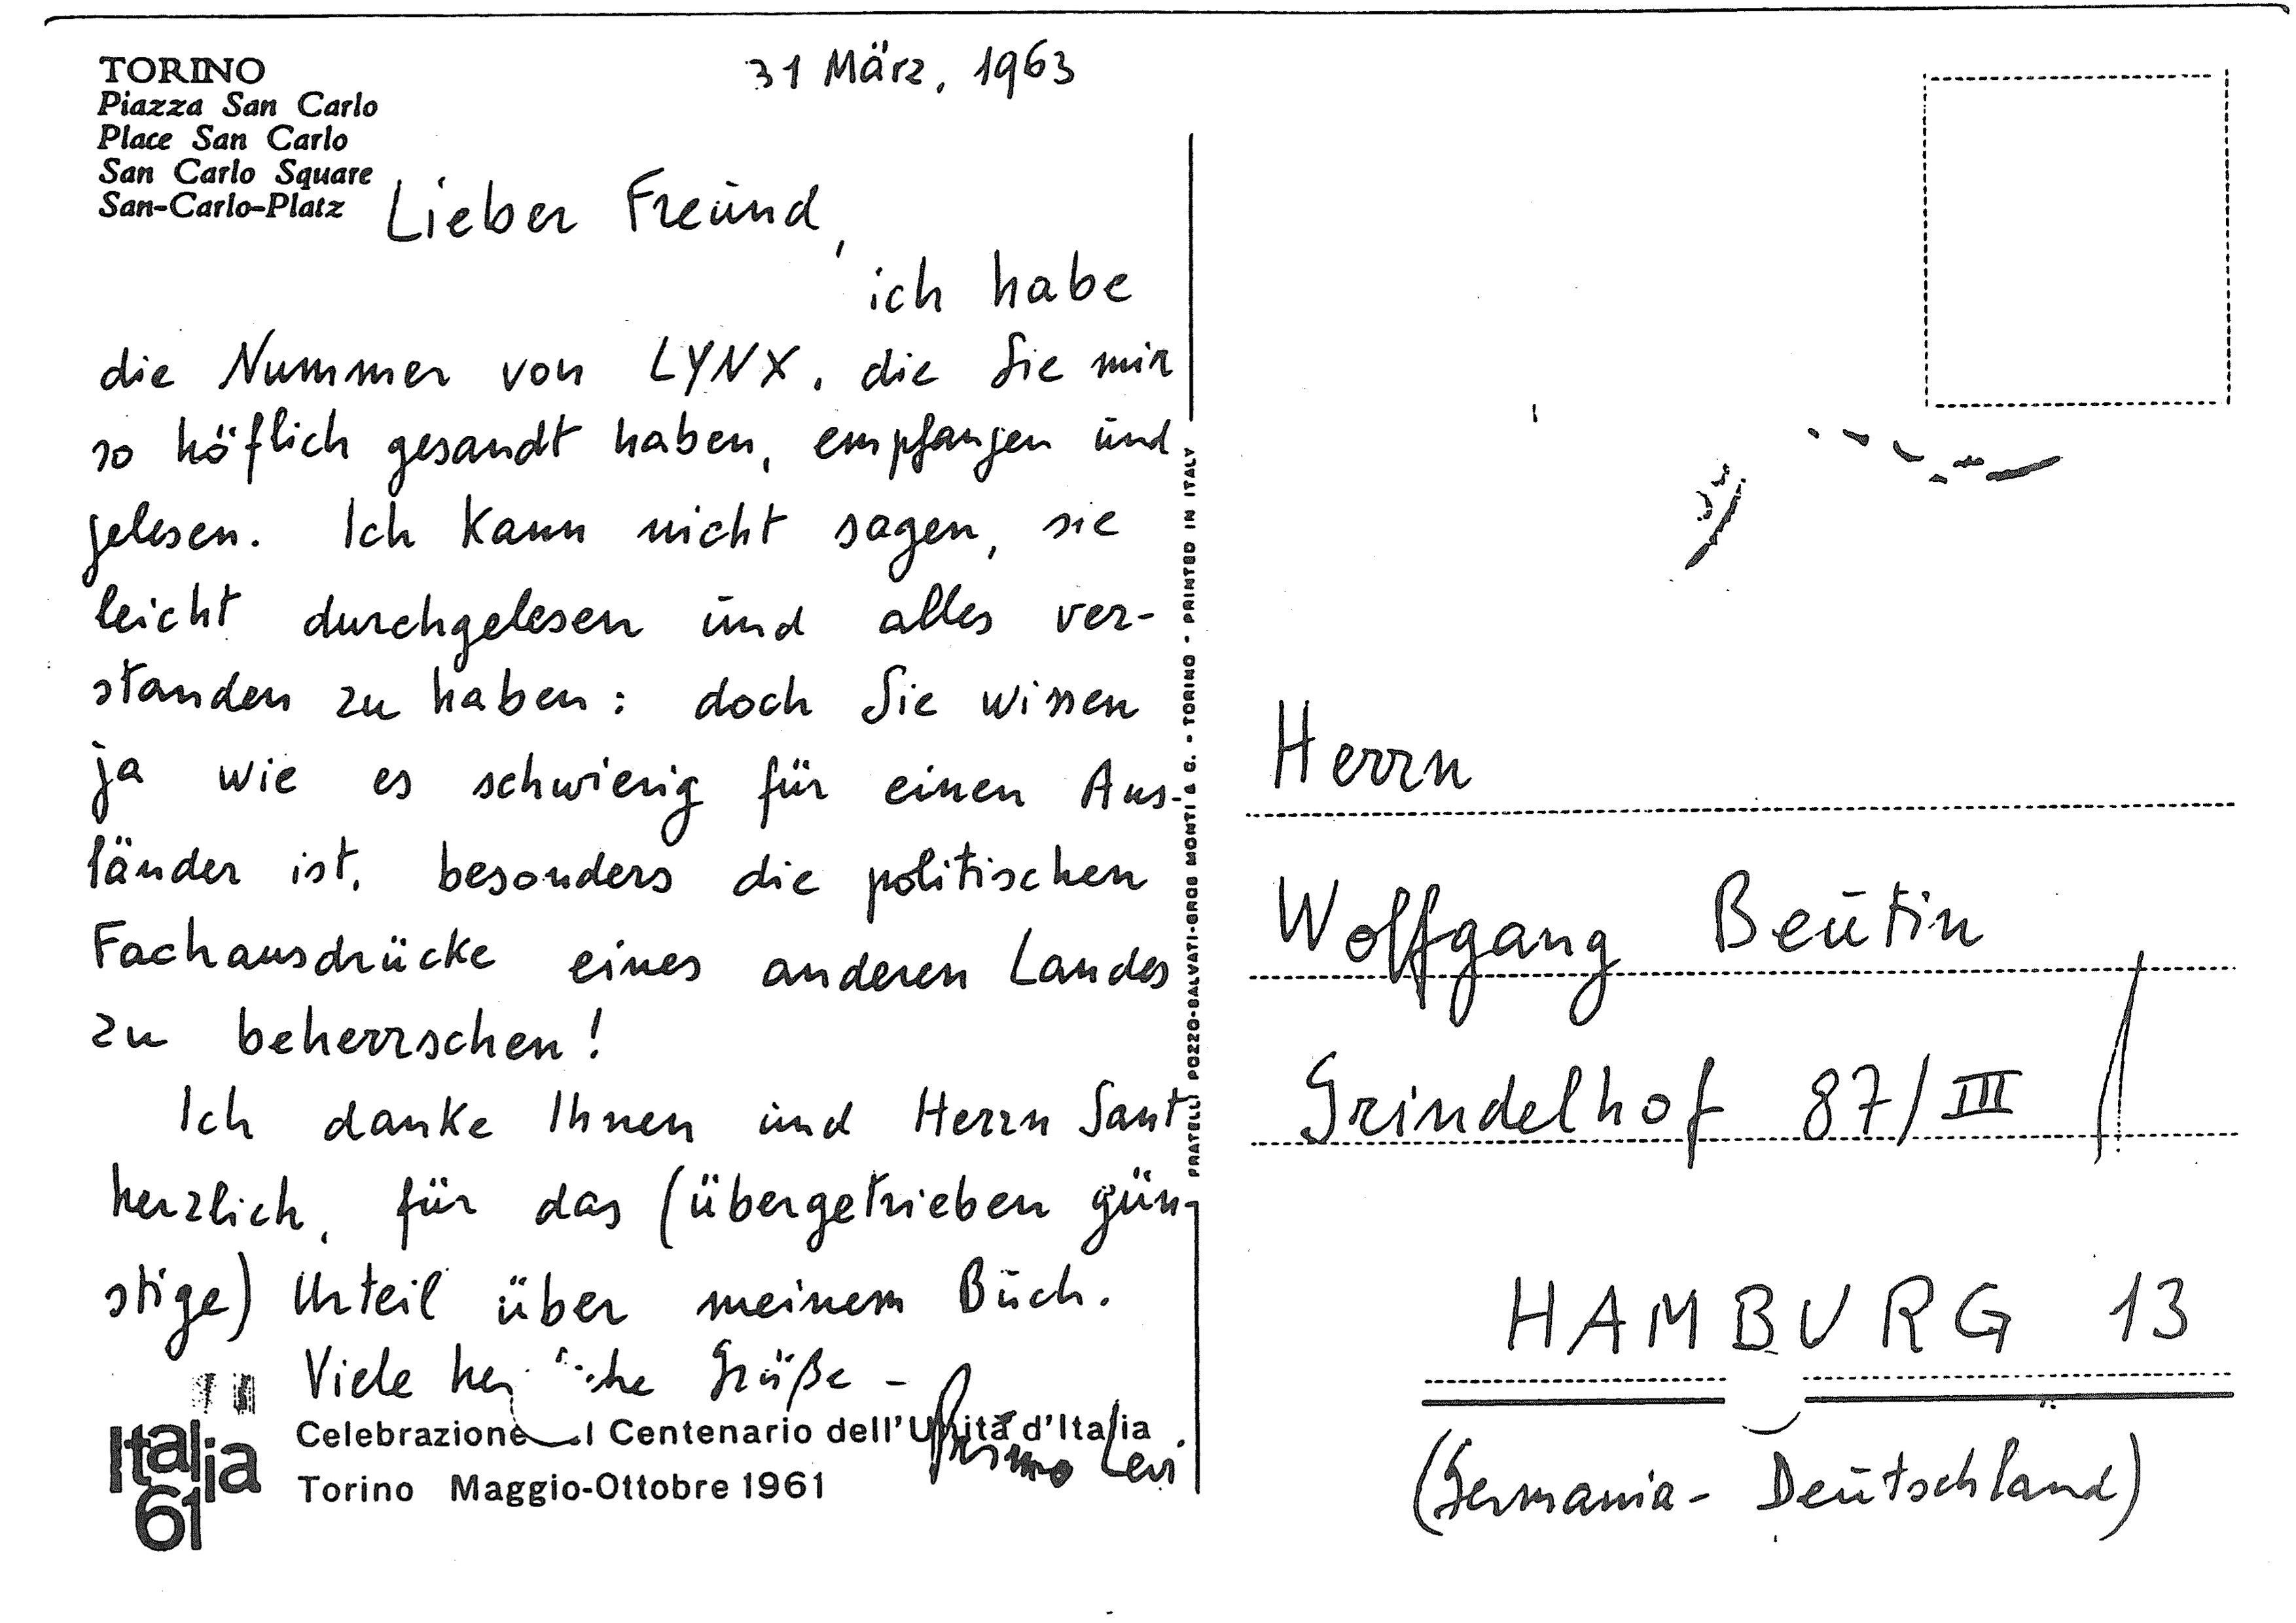 TORINO
Piazza San Carlo
Place San Carlo
San Carlo Square
San-Carlo-Platz
31 März, 1963
Lieber Freund,
ich habe
die Nummer von LYNX, die Sie mir
so höflich gesandt haben, empfangen und
gelesen. Ich kann nicht sagen, sie
leicht durchgelesen und alles ver-
standen zu haben: doch Sie wissen
ja wie es schwierig für einen Aus-
länder ist, besonders die politischen
Fachausdrücke eines anderen Landes
zu beherrschen!
Ich danke Ihnen und Herrn Sant
herzlich, für das (übergetrieben gün-
stige) Urteil über meinem Buch.
Viele Grüße -
Primo Levi
Italia
61
Celebrazione Centenario dell'Unità d'Italia
Torino Maggio-Ottobre 1961
FRATELLI POZZO-SALVATI-GROS MONTI & C. - TORINO - PRINTED IN ITALY
Herrn
Wolfgang Beutin
Grindelhof 87/III
HAMBURG 13
(Germania - Deutschland)